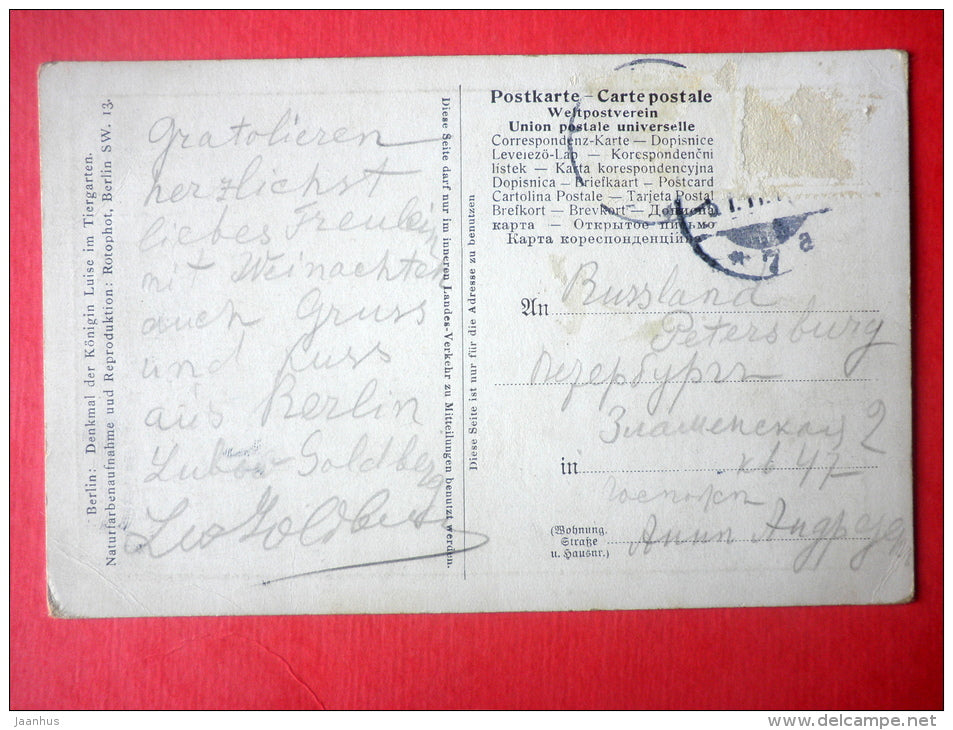 Berlin: Denkmal der Königin Luise im Tiergarten.
Naturfarbenaufnahme und Reproduktion: Rotophot, Berlin SW. 13.
Gratolieren
herzlichst
liebes
mit Weinachten
auch Gruss
und Kuss
aus Berlin
Goldberg
Leo Goldberg
Diese Seite darf nur im inneren Landes-Verkehr zu Mitteilungen benutzt werden.
Diese Seite ist nur für die Adresse zu benutzen
Postkarte – Carte postale
Weltpostverein
Union postale universelle
Correspondenz-Karte — Dopisnice
Levelező-Lap — Korespondenční
listek — Karta korespondencyjna
Dopisnica — Briefkaart — Postcard
Cartolina Postale — Tarjeta Postal
Brefkort — Brevkort —
карта — Открытое письмо
Карта кореспонденційна
* 7 a
An Russland
Petersburg
Петербургъ
Знаменская 2
in кв 47
Госпожѣ
(Wohnung,
Straße
u. Hausnr.)
Аннѣ
Jaanhus
www.delcampe.net